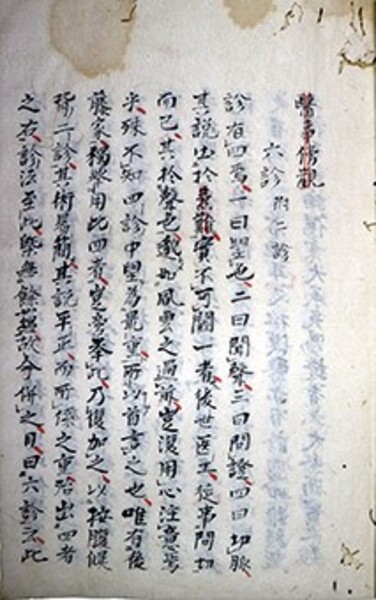 醫事傍觀
六診 附二診
診有四焉一曰望也二曰聞聲三曰問證四曰切脉
其說出於素難實不可闕一者後世医工從事問切
而已其於聲色觀如風雲之過前豈復用心注意焉
半殊不知四診中望爲最重所以首言之也唯有後
藤家獨舉用此四者豈奉此乃復加之以按腹候
二診其術易簡其說平正而所係之重殆出四者
之右診法至此槩無餘蘊故今併之目曰六診云此